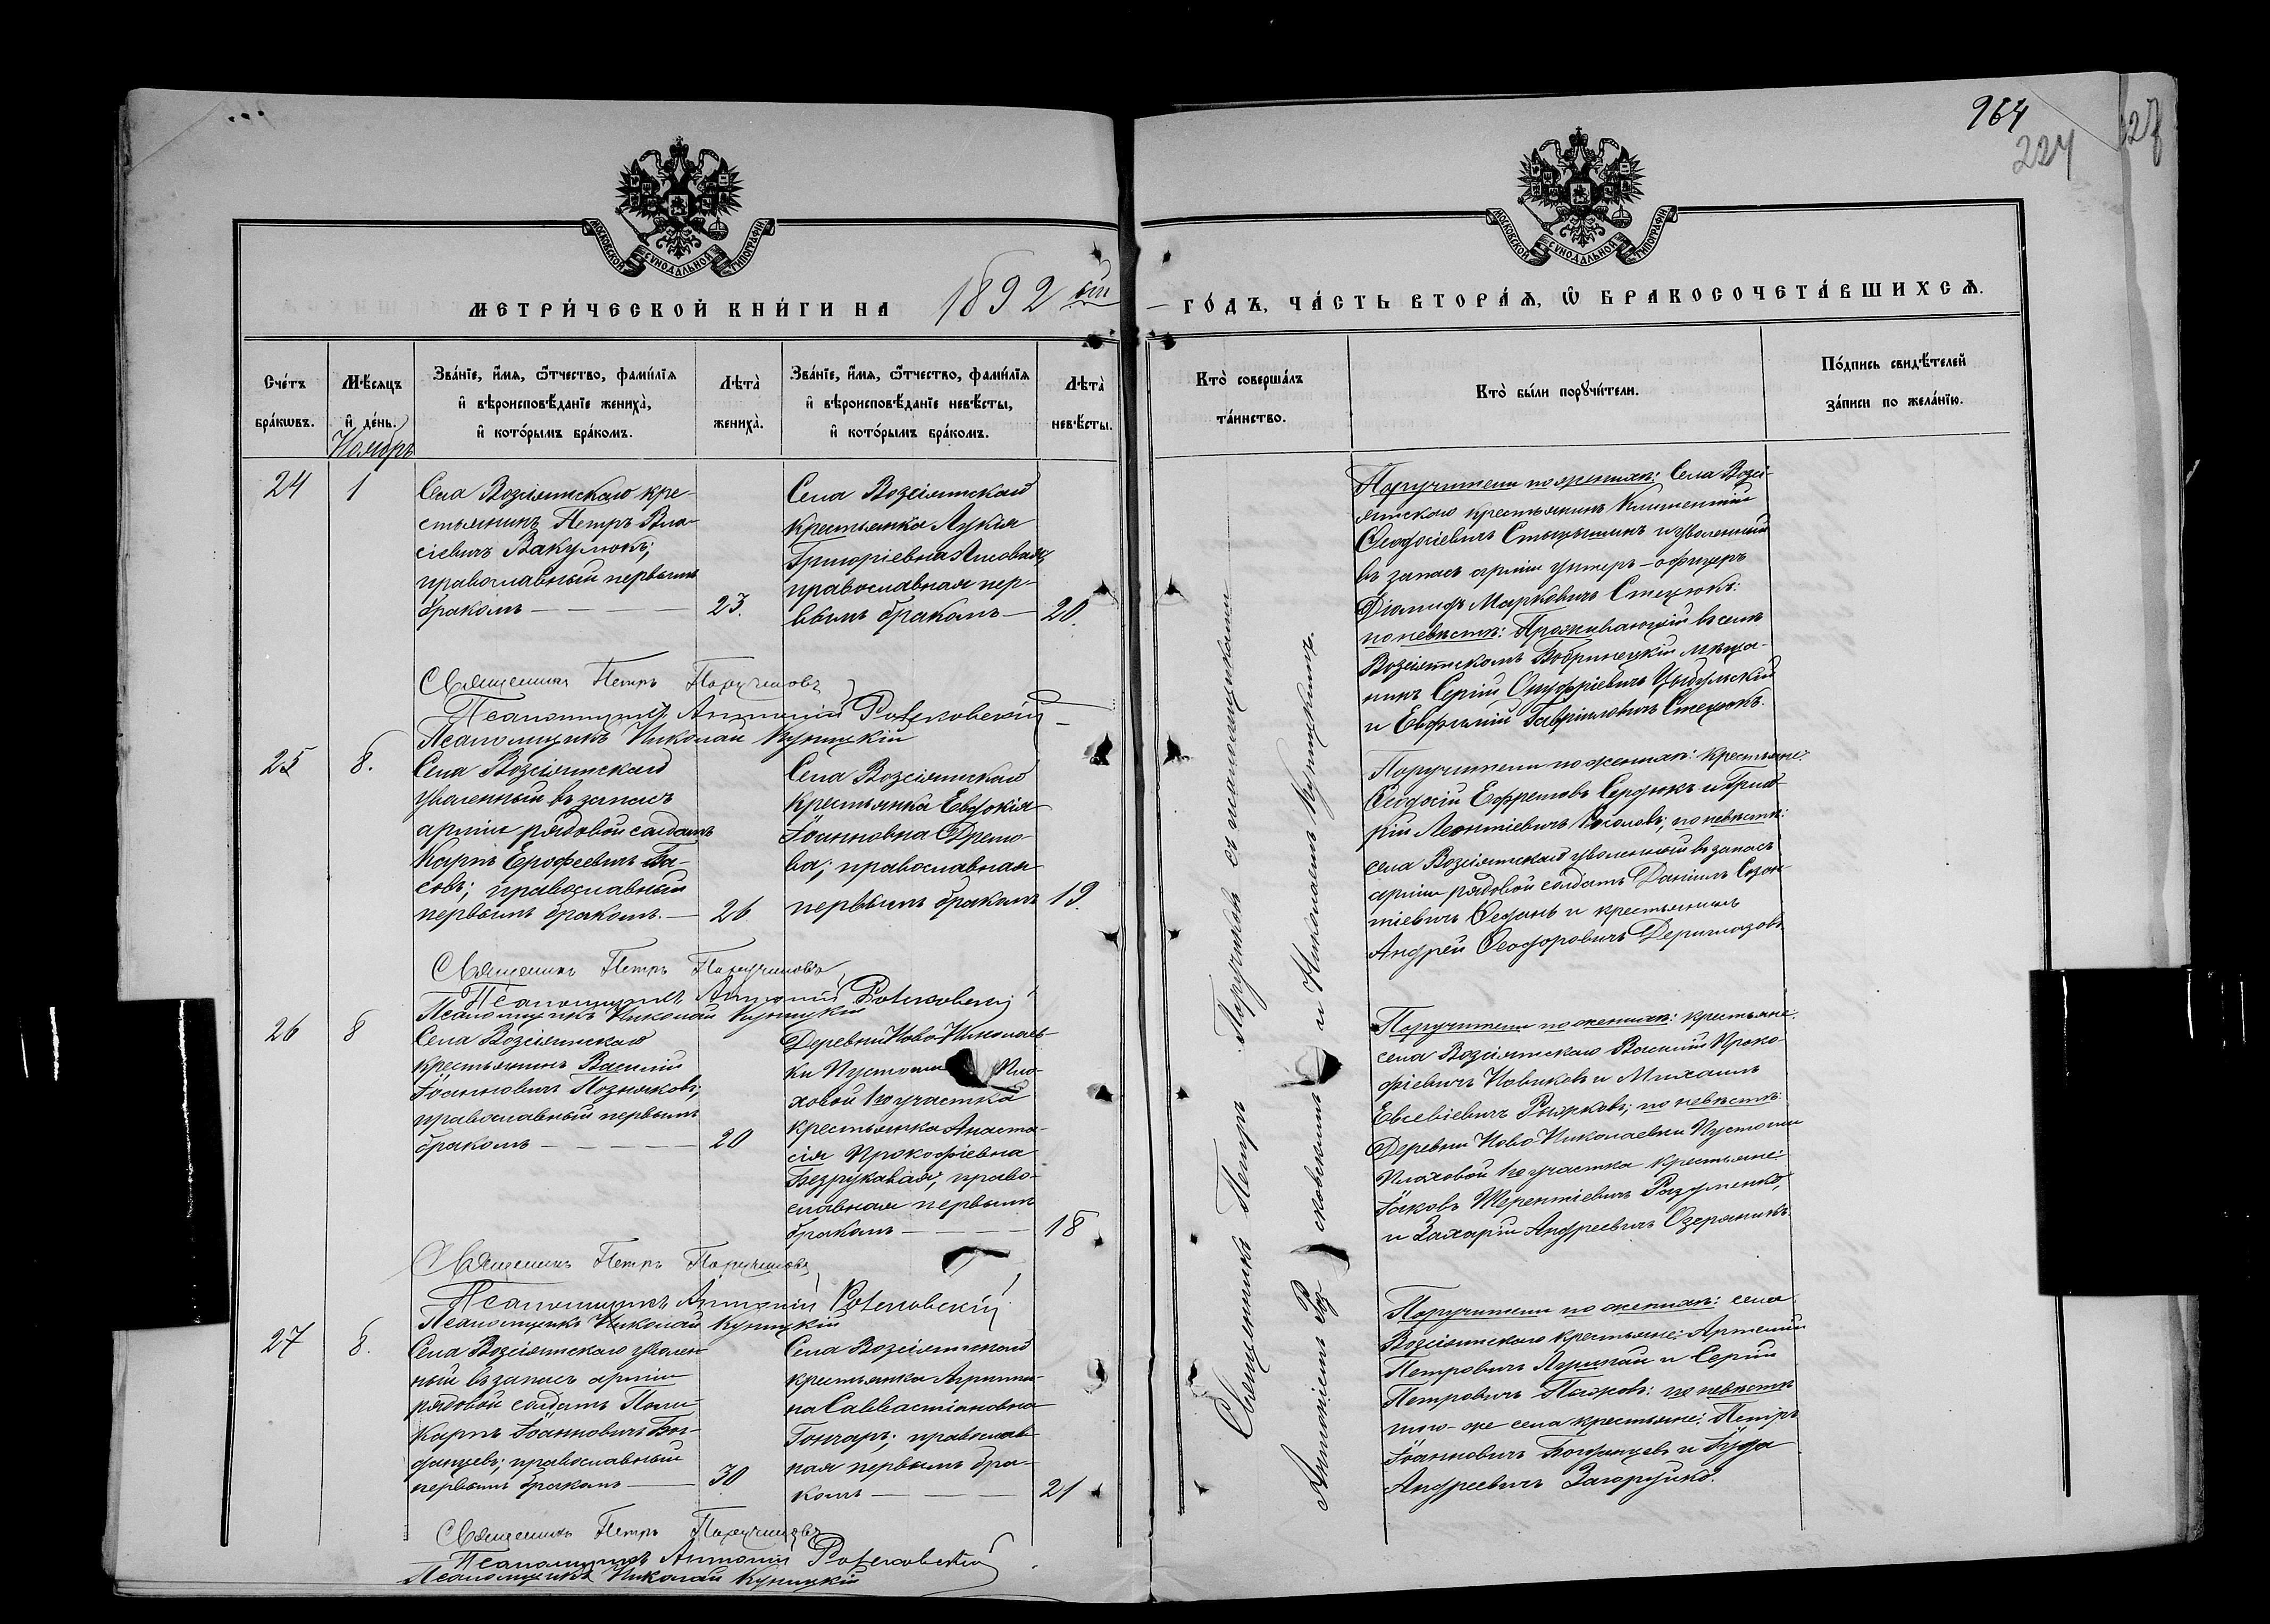 964
224
МОСКОВСКОЙ СѴНОДАЛЬНОЙ ТИПОГРАФІИ
МОСКОВСКОЙ СѴНОДАЛЬНОЙ ТИПОГРАФІИ
МЕТРИ́ЧЕСКОЙ КНИ́ГИ НА 1892 ый
ГО́ДЪ, ЧА́СТЬ ВТОРА́Ѧ, Ѽ БРАКОСОЧЕТА́ВШИХСѦ.
Сче́тъ бра́кѡвъ.
Мѣ́сяцъ и҆ де́нь.
Зва́нїе, и҆́мя, ѻ҆́тчество, фами́лїя
и҆ вѣроисповѣ́данїе жениха̀,
и҆ кото́рымъ бра́комъ.
Лѣта̀ жениха̀.
Зва́нїе, и҆́мя, ѻ҆́тчество, фами́лїя
и҆ вѣроисповѣ́данїе невѣ́сты,
и҆ кото́рымъ бра́комъ.
Лѣта̀ невѣ́сты.
Кто̀ соверша́лъ
та́инство.
Кто̀ бы́ли порꙋчи́тели.
По́дпись свидѣ́телей
за́писи по жела́нїю.
Ноябрь
24
1
Села Возсіятскаго кре-
стьянинъ Петръ Вла-
сіевичъ Вакулюкъ;
православный первымъ
бракомъ
23.
Села Возсіятскаго
крестьянка Лукія
Григоріевна
православная пер-
вымъ бракомъ
20.
Поручители по женихѣ: Села Возсі-
ятскаго крестьянинъ Климентій
Ѳеодосіевичъ и уволенный
въ запасъ арміи унтеръ-офицеръ
Діомидъ Марковичъ Стецюкъ:
по невѣстѣ: Проживающій въ селѣ
Возсіятскомъ Бобринецкій мѣща-
нинъ Сергій Онуфріевичъ
и Евфимій Гавріиловичъ Стецюкъ.
Священникъ Петръ Поручиковъ
Псаломщикъ Антоній
Псаломщикъ Николай Куницкій
25
8.
Села Возсіятскаго
уволенный въ запасъ
арміи рядовой солдатъ
Карпъ Ерофеевичъ Ба-
совъ; православный
первымъ бракомъ.
26
Села Возсіятскаго
крестьянка Евдокія
Іоанновна
ва; православная
первымъ бракомъ
19.
Поручители по женихѣ: крестьяне:
Ѳеодосій Ефремовъ Сердюкъ и Григо-
рій Леонтіевичъ по невѣстѣ:
села Возсіятскаго уволенный въ запасъ
арміи рядовой солдатъ Даніилъ Созон-
тіевичъ и крестьянинъ
Андрей Ѳеодоровичъ Деримазовъ
Священникъ Петръ Поручиковъ
Псаломщикъ Антоній
Псаломщикъ Николай Куницкій
26
8
Села Возсіятскаго
крестьянинъ Василій
Іоанновичъ Позняковъ;
православный первымъ
бракомъ
20
Деревни Ново-Николаев-
ки Пустоши Пло-
ховой 1го участка
крестьянка Анаста-
сія Прокофіевна
Безрукавая; право-
славная первымъ
бракомъ
18
Поручители по женихѣ: крестьяне:
села Возсіятскаго Василій Проко-
фіевичъ Новиковъ и Михаилъ
Евсевіевичъ Рыжковъ; по невѣстѣ:
Деревни Ново-Николаевки Пустоши
Плоховой 1го участка крестьяне:
Іаковъ Терентіевичъ Разуменко,
и Захарій Андреевичъ Озеряникъ.
Священникъ Петръ Поручиковъ
Псаломщикъ Антоній
Псаломщикъ Николай Куницкій
27
8.
Села Возсіятскаго уволен-
ный въ запасъ арміи
рядовой солдатъ Поли-
карпъ Іоанновичъ Бог-
данцевъ; православный
первымъ бракомъ
30
Села Возсіятскаго
крестьянка Агриппи-
на Савастіановна
Гончаръ; православ-
ная первымъ бра-
комъ
21
Поручители по женихѣ: села
Возсіятскаго крестьяне: Артемій
Петровичъ и Сергій
Петровичъ по невѣстѣ
того-же села крестьяне: Петръ
Іоанновичъ Богданцевъ и Іуда
Андреевичъ Загоруйко.
Священникъ Петръ Поручиковъ
Псаломщикъ Антоній
Псаломщикъ Николай Куницкій
Священникъ Петръ Поручиковъ съ псаломщиками
Антоніемъ и Николаемъ Куницкимъ.